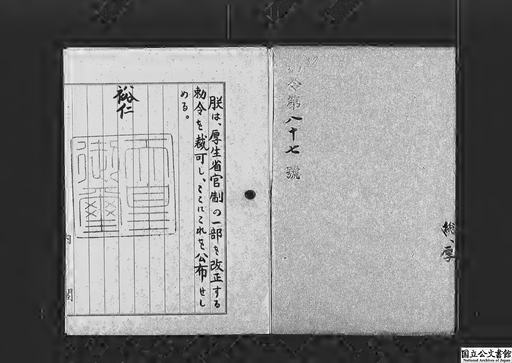 令第八十七號
総、厚
朕は、厚生省官制の一部を改正する
勅令を裁可し、ここにこれを公布せし
める。
裕仁
天皇御璽
内閣
国立公文書館
National Archives of Japan